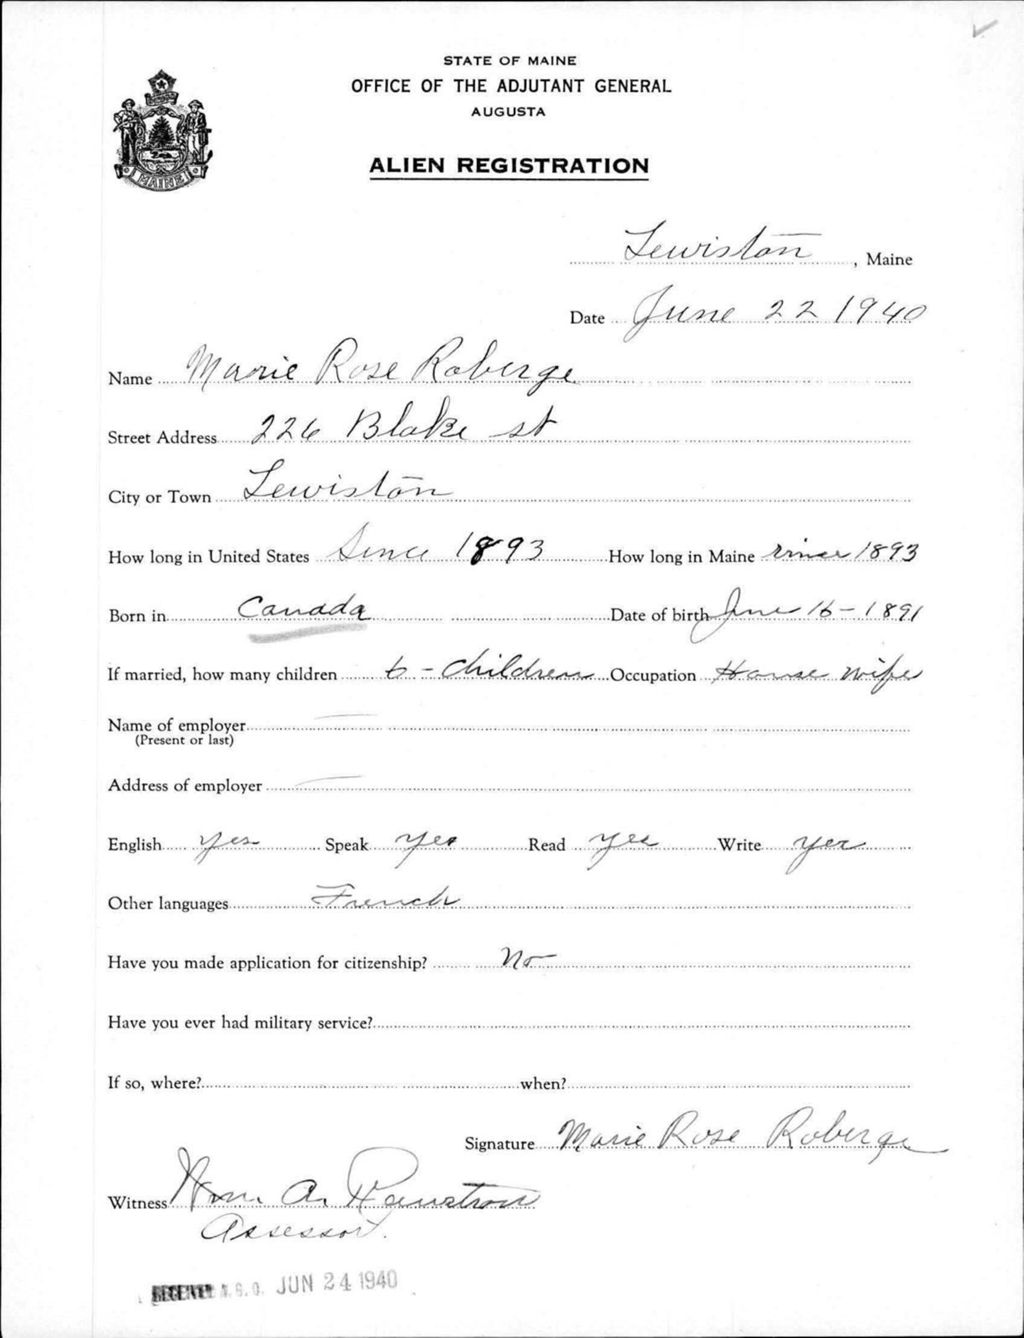 STATE OF MAINE
OFFICE OF THE ADJUTANT GENERAL
AUGUSTA
ALIEN REGISTRATION
MAINE
Lewiston, Maine
Date June 22 1940
Name Marie Rose Roberge
Street Address 226 Blake st
City or Town Lewiston
How long in United States Since 1893 How long in Maine since 1893
Born in Canada Date of birth June 16-1891
If married, how many children 6 - Children Occupation House wife
Name of employer
(Present or last)
Address of employer
English yes Speak yes Read yes Write yes
Other languages French
Have you made application for citizenship? No
Have you ever had military service?
If so, where? when?
Signature Marie Rose Roberge
Witness Wm. A.
Assessor.
RECEIVED A.G.O. JUN 24 1940